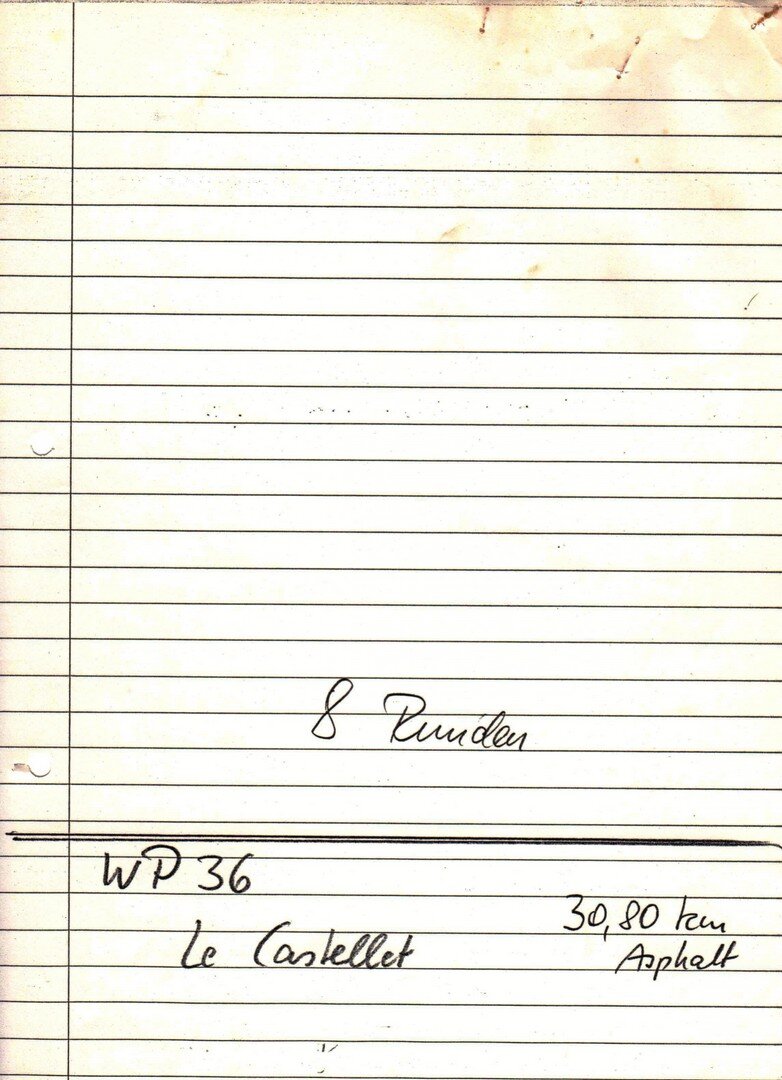 8 Runden
WP 36
30,80 km
Le Castellet
Asphalt